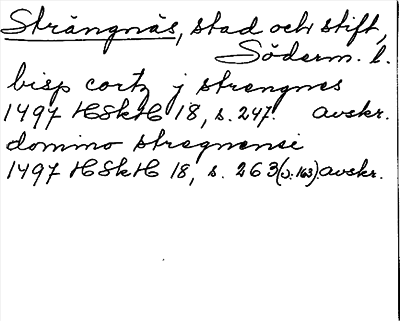 Strängnäs, stad och stift,
Söderm. l.
bisp cortz j strengnes
1497 HSkH 18, s. 247. avskr.
domino stregnensi
1497 HSkH 18, s. 263 (o: 163). avskr.